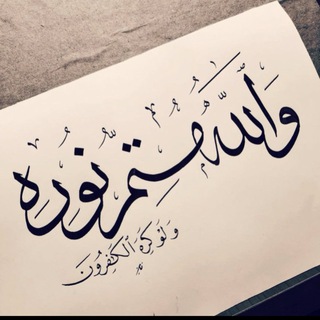 وَاللَّهُ مُتِمُّ نُورِهِ
وَلَوْ كَرِهَ الْكَٰفِرُونَ